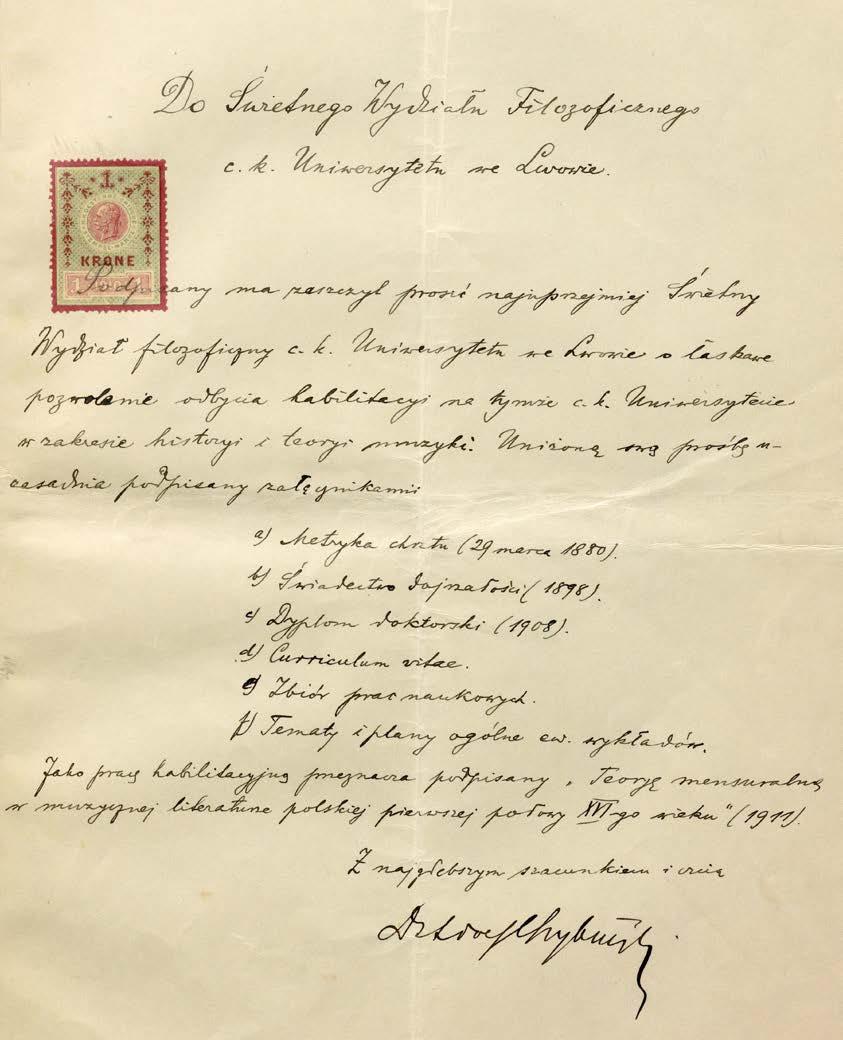 Do Świetnego Wydziału Filozoficznego
c. k. Uniwersytetu we Lwowie.
1
KRONE
Podpisany ma zaszczyt prosić najuprzejmiej Świetny
Wydział filozoficzny c. k. Uniwersytetu we Lwowie o łaskawe
pozwolenie odbycia habilitacyi na tymże c. k. Uniwersytecie
w zakresie historyi i teoryi muzyki. Uniżoną swą prośbę u-
zasadnia podpisany załącznikami
a) Metryka chrztu (29 marca 1880).
b) Świadectwo dojrzałości (1898).
c) Dyplom doktorski (1908).
d) Curriculum vitae.
e) Zbiór prac naukowych.
f) Tematy i plany ogólne ew. wykładów.
Jako pracę habilitacyjną przeznacza podpisany „Teoryę mensuralną
w muzycznej literaturze polskiej pierwszej połowy XVI-go wieku" (1911).
Z najgłębszym szacunkiem i czcią
Dr Adolf Chybiński